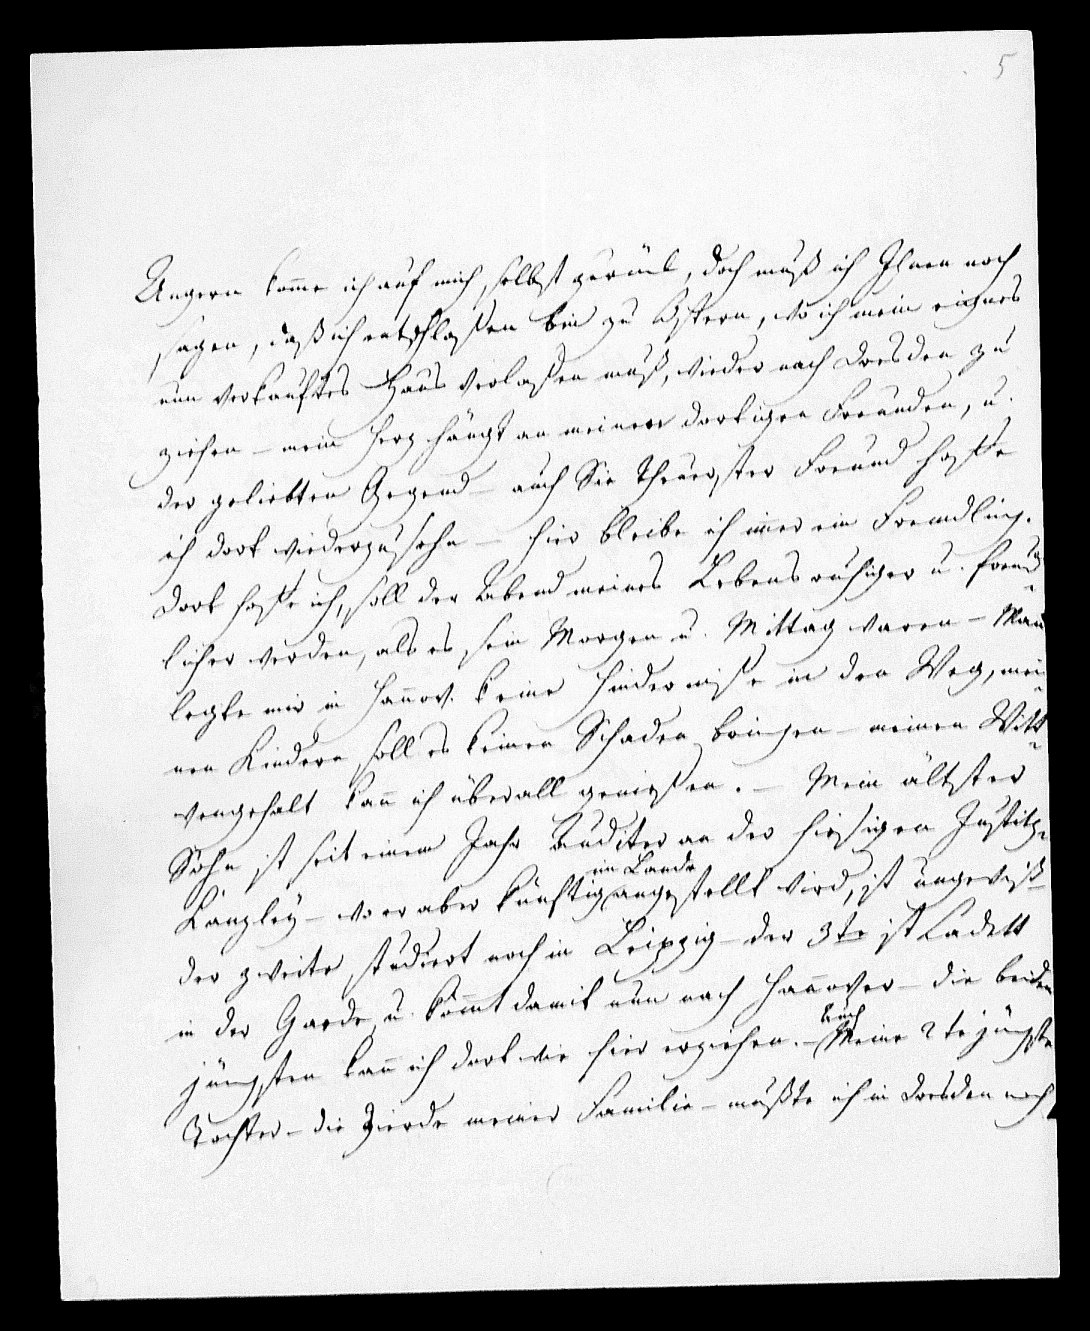 5
Ungern kome ich auf mich selbst zurück, doch muß ich Ihnen noch
sagen, daß ich entschloßen bin zu Ostern, wo ich mein eignes
nun verkauftes Haus verlaßen muß, wieder nach Dresden zu
ziehen – mein Herz hängt an meinen dortigen Freunden, u.
der geliebten Gegend – auch Sie theuerster Freund hoffe
ich dort wiederzusehn – hier bleibe ich imer ein Fremdling.
Dort hoffe ich, soll der Abend meines Lebens ruhiger u. freund
licher werden, als es sein Morgen u. Mittag waren – Man
legte mir in Hannov. keine Hinderniße in den Weg, mei
nen Kindern soll es keinen Schaden bringen – meinen Witt
wengehalt kan ich überall genießen. – Mein ältster
Sohn ist seit einem Jahr Auditer an der hiesigen Justitz-
Kanzley – wo er aber künftig im Lande angestellt wird, ist ungewiß –
der zweite studiert noch in Leipzig – der 3te ist Cadett
in der Garde u. kömt damit nun nach Hannover – die beiden
jüngsten kan ich dort wie hier erziehen. – Auch Meine 2te jüngste
Tochter – die Zierde meiner Familie – mußte ich in Dresden noch